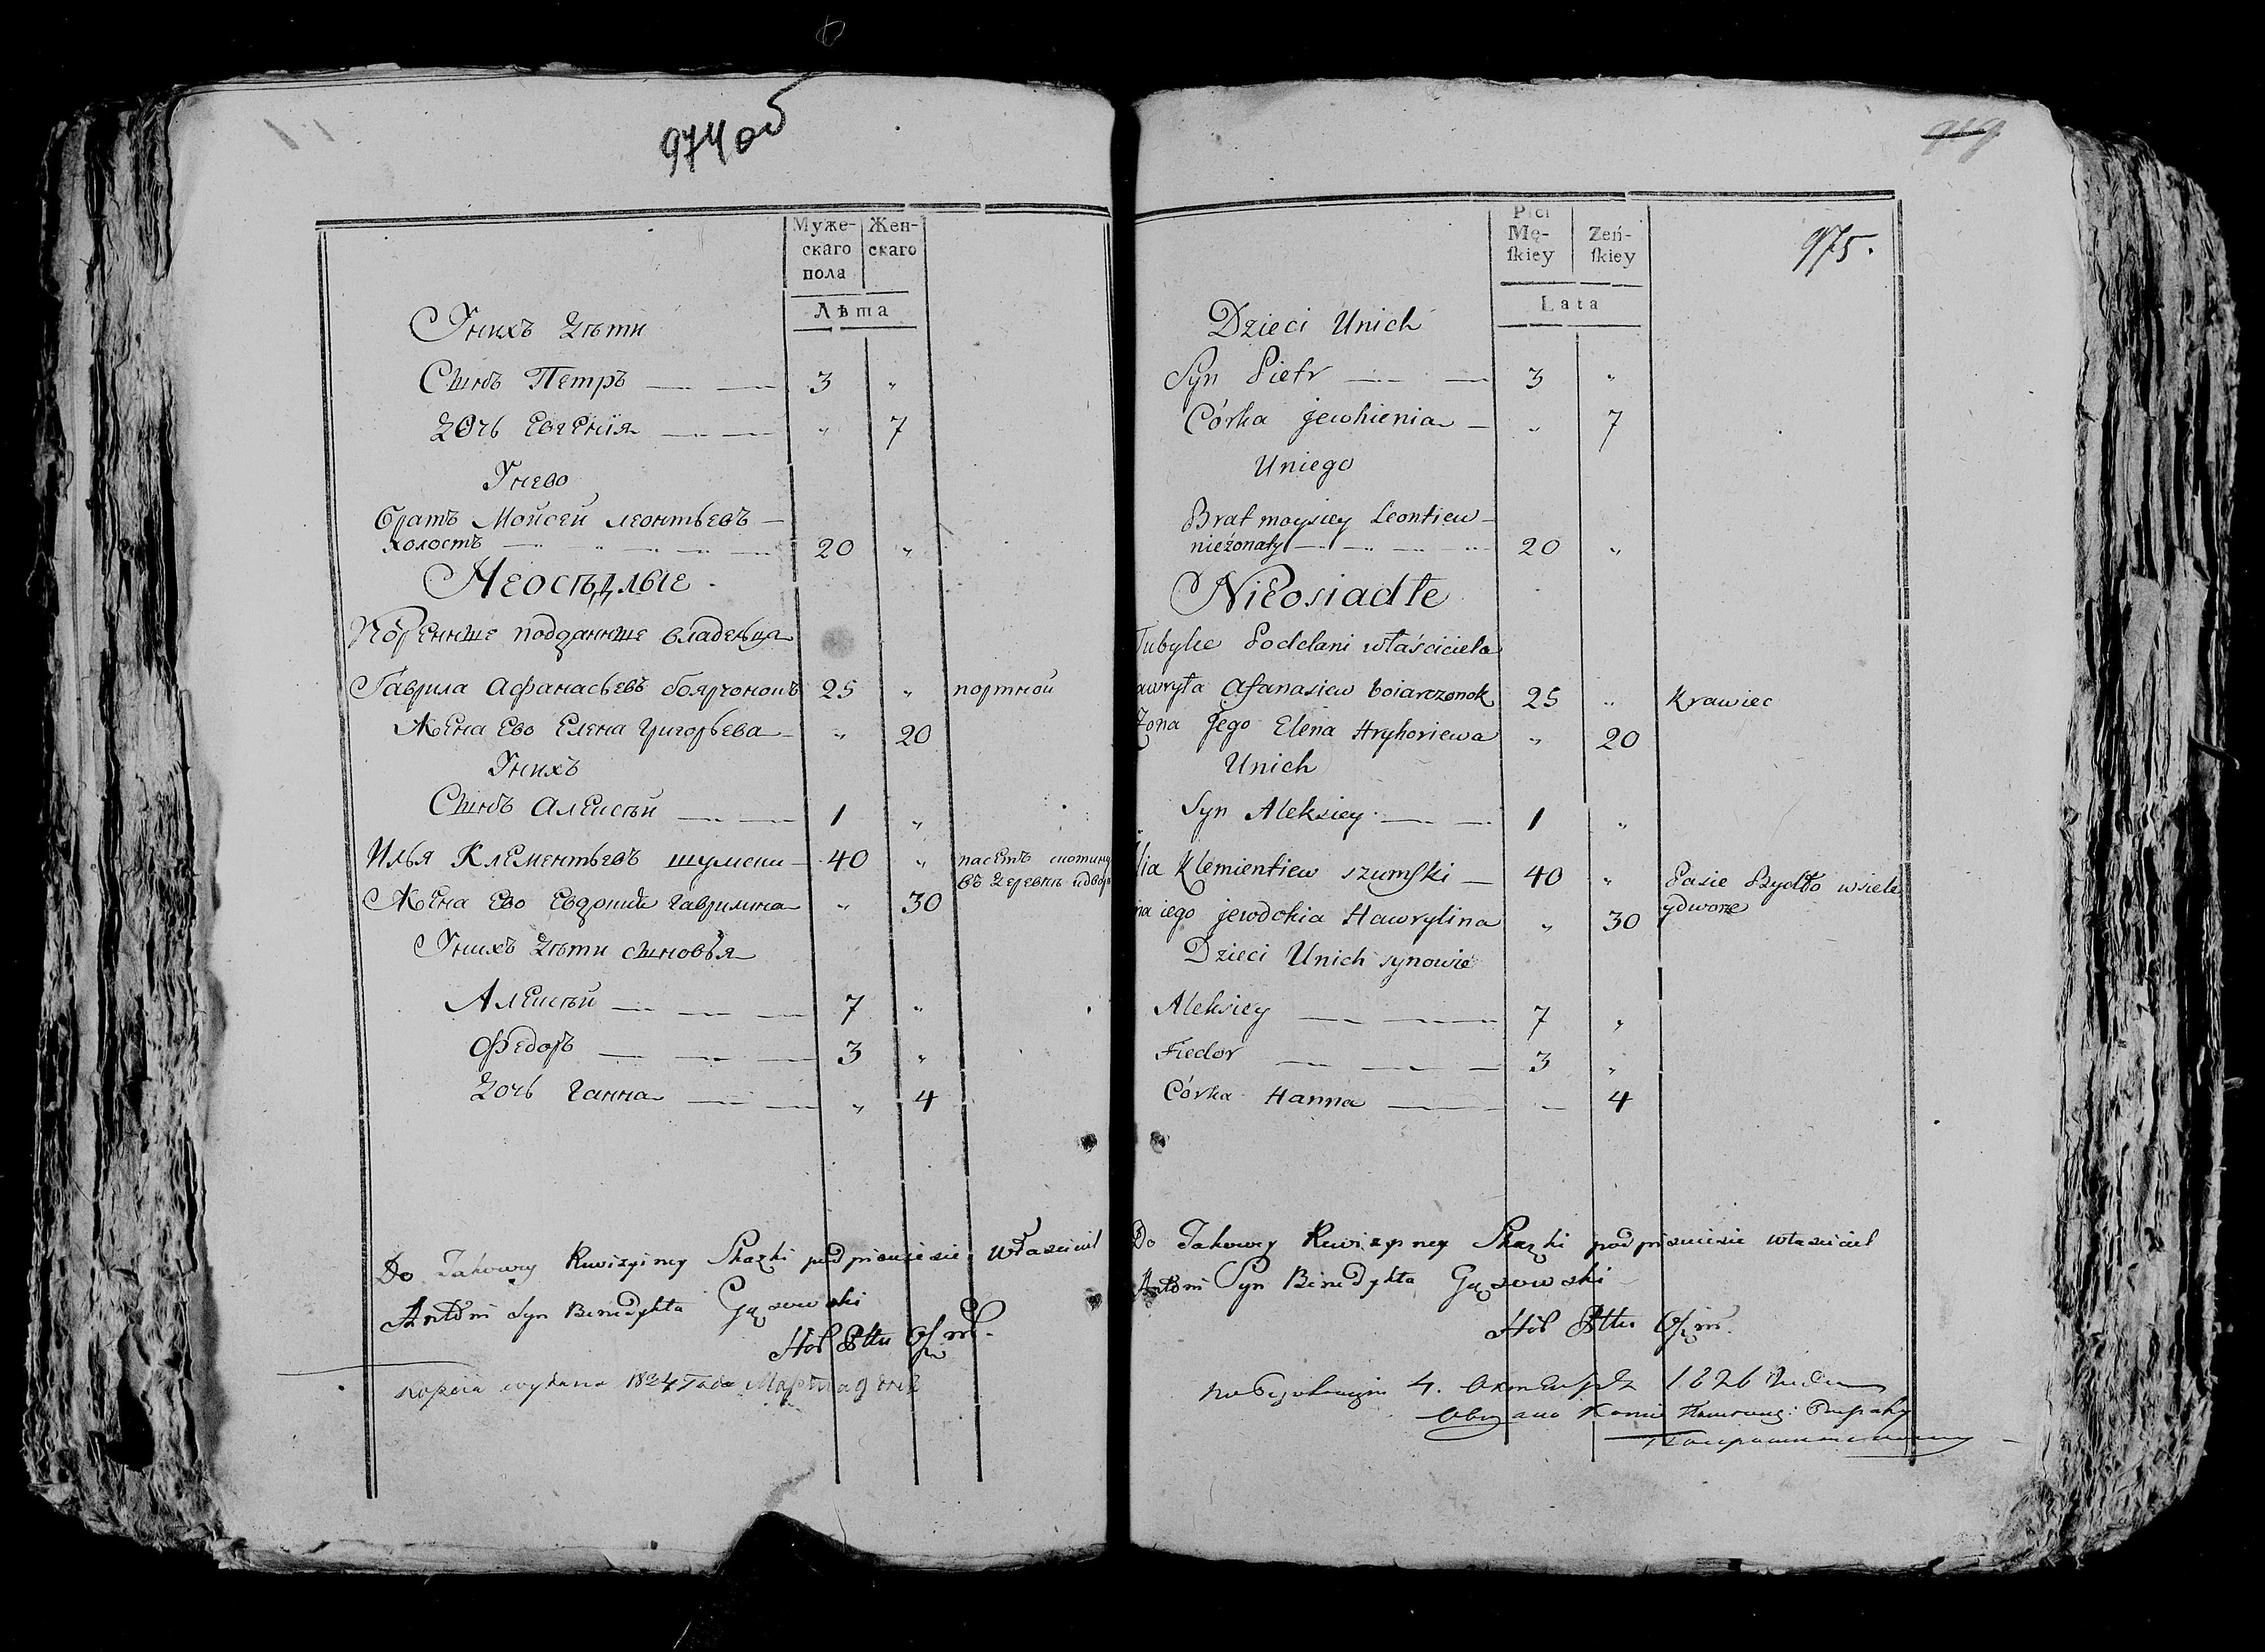 974об
Муже-
скаго
пола
Жен-
скаго
Лѣта
Унихъ Дѣти
Сынъ Петръ 3 "
Дочь Евгения " 7
Унево
братъ Мойсей леонтьевъ
холостъ 20 "
Неосѣдлые
подданные владельца
Гаврила Афанасьевъ боярчонокъ 25 " портной
Жена Ево Елена Григорьева " 20
Унихъ
Сынъ Алексѣй 1 "
Илья Клементьевъ шумски 40 " пасетъ скотину
въ деревнѣ
Жена Ево Евдокия гаврилина " 30
Унихъ Дѣти сыновья
Алексѣй 7 "
Федоръ 3 "
Дочь Ганна " 4
Do Takowey Rewizyiney Skazki podpisuie sie własciciel
Antoni Syn Benedykta Gąsowski
Kopia wydana 1824 года Марта 9 дня
919
975.
Płci
Mę-
ſkiey
Zeń-
ſkiey
Lata
Dzieci Unich
Syn Pietr 3 "
Córka jewhienia 7
Uniego
Brat moysiey Leontiew
nieżonaty 20 "
Nieosiadłe
Tubylce Poddani właściciela
awryła Afanasiew boiarczonok 25 " Krawiec
Żona Jego Elena Hryhoriewa " 20
Unich
Syn Aleksiey 1 "
lia Klemientiew szumſki 40 " Pasie Bydło wsiele
ydworze
na iego jewdokia Hawrylina " 30
Dzieci Unich synowie
Aleksiey 7 "
Fiedor 3 "
Córka Hanna 4
Do Takowey Rewizyney Skazki podpisuie sie własciciel
Antoni Syn Benedykta Gąsowski
4. 1826